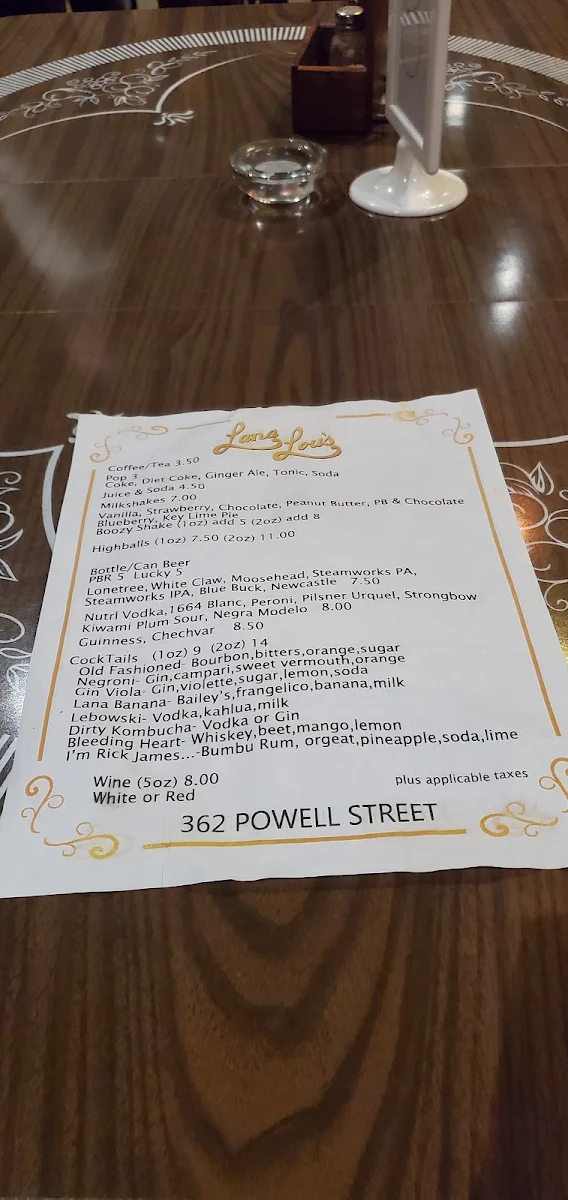 Lana Lou's
Coffee/Tea 3.50
Pop 3
Coke, Diet Coke, Ginger Ale, Tonic, Soda
Juice & Soda 4.50
Milkshakes 7.00
Vanilla, Strawberry, Chocolate, Peanut Butter, PB & Chocolate
Blueberry, Key Lime Pie
Boozy Shake (1oz) add 5 (2oz) add 8
Highballs (1oz) 7.50 (2oz) 11.00
Bottle/Can Beer
PBR 5 Lucky 5
Lonetree, White Claw, Moosehead, Steamworks PA,
Steamworks IPA, Blue Buck, Newcastle 7.50
Nutrl Vodka,1664 Blanc, Peroni, Pilsner Urquel, Strongbow
Kiwami Plum Sour, Negra Modelo 8.00
Guinness, Chechvar 8.50
CockTails (1oz) 9 (2oz) 14
Old Fashioned- Bourbon,bitters,orange,sugar
Negroni- Gin,campari,sweet vermouth,orange
Gin Viola- Gin,violette,sugar,lemon,soda
Lana Banana- Bailey's,frangelico,banana,milk
Lebowski- Vodka,kahlua,milk
Dirty Kombucha- Vodka or Gin
Bleeding Heart- Whiskey,beet,mango,lemon
I'm Rick James...-Bumbu Rum, orgeat,pineapple,soda,lime
Wine (5oz) 8.00
White or Red
plus applicable taxes
362 POWELL STREET